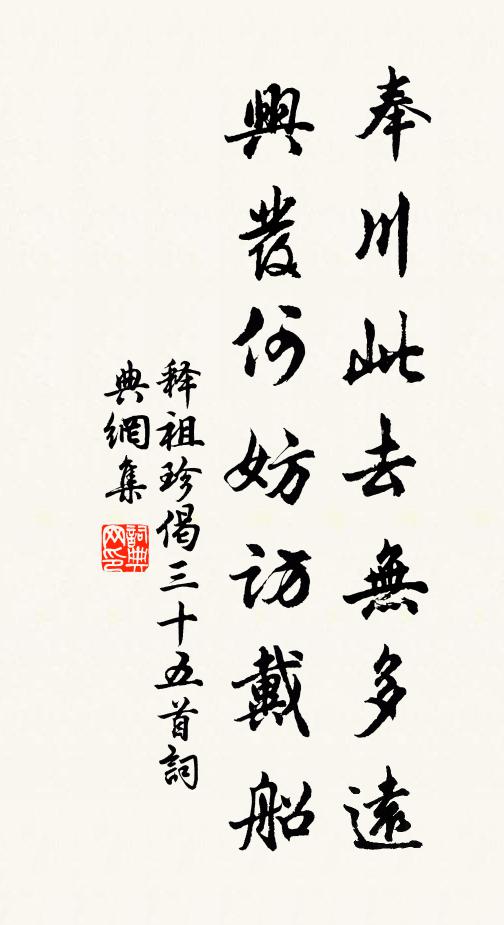 奉川此去無多遠
興發何妨訪戴船
释祖珍偈三十五首詞
典網集
詞典網印